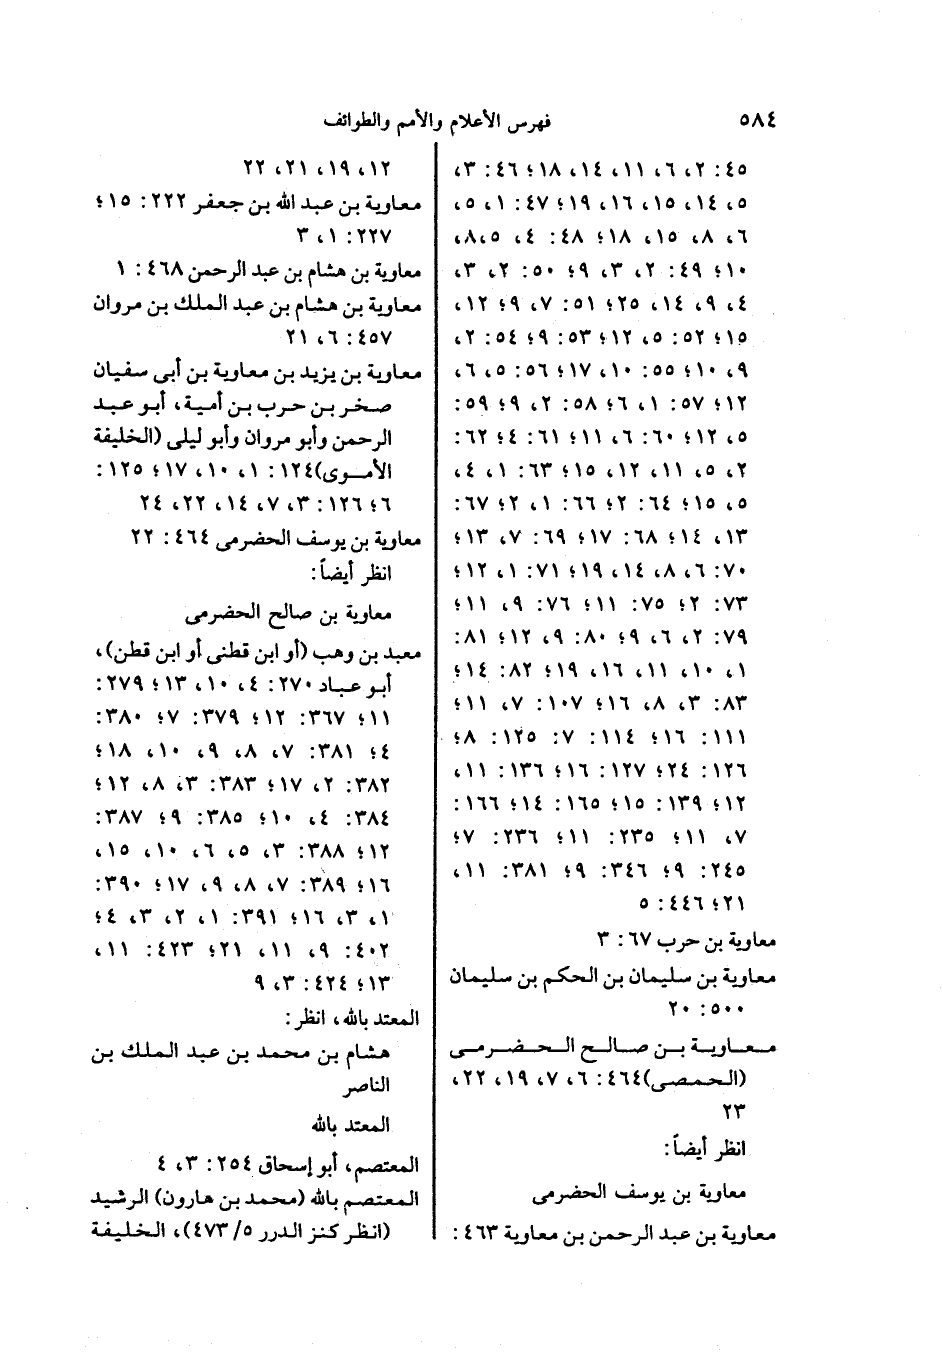 ٥٨٤
فهرس الأعلام والأمم والطوائف
٤٥: ٢، ٦، ١١، ١٤، ١٨؛ ٤٦: ٣،
٥، ١٤، ١٥، ١٦، ١٩؛ ٤٧: ١، ٥،
٦، ٨، ١٥، ١٨؛ ٤٨: ٤، ٥،٨،
١٠؛ ٤٩: ٢، ٣، ٩؛ ٥٠: ٢، ٣،
٤، ٩، ١٤، ٢٥؛ ٥١: ٧، ٩؛ ١٢،
١٥؛ ٥٢: ٥، ١٢؛ ٥٣: ٩؛ ٥٤: ٢،
٩، ١٠؛ ٥٥: ١٠، ١٧؛ ٥٦: ٥، ٦،
١٢؛ ٥٧: ١، ٦؛ ٥٨: ٢، ٩؛ ٥٩:
٥، ١٢؛ ٦٠: ٦، ١١؛ ٦١: ٤؛ ٦٢:
٢، ٥، ١١، ١٢، ١٥؛ ٦٣: ١، ٤،
٥، ١٥؛ ٦٤: ٢؛ ٦٦: ١، ٢؛ ٦٧:
١٣، ١٤؛ ٦٨: ١٧؛ ٦٩: ٧، ١٣؛
٧٠: ٦، ٨، ١٤، ١٩؛ ٧١: ١، ١٢؛
٧٣: ٢؛ ٧٥: ١١؛ ٧٦: ٩، ١١؛
٧٩: ٢، ٦، ٩؛ ٨٠: ٩، ١٢؛ ٨١:
١، ١٠، ١١، ١٦، ١٩؛ ٨٢: ١٤؛
٨٣: ٣، ٨، ١٦؛ ١٠٧: ٧، ١١؛
١١١: ١٦؛ ١١٤: ٧: ١٢٥: ٨؛
١٢٦: ٢٤؛ ١٢٧: ١٦؛ ١٣٦: ١١،
١٢؛ ١٣٩: ١٥؛ ١٦٥: ١٤؛ ١٦٦:
٧، ١١؛ ٢٣٥: ١١؛ ٢٣٦: ٧؛
٢٤٥: ٩؛ ٣٤٦: ٩؛ ٣٨١: ١١،
٢١؛ ٤٤٦: ٥
معاوية بن حرب ٦٧: ٣
معاوية بن سليمان بن الحكم بن سليمان
٥٠٠: ٢٠
معاوية بن صالح الحضرمى
(الحمصى)٤٦٤: ٦، ٧، ١٩، ٢٢،
٢٣
انظر أيضاً:
معاوية بن يوسف الحضرمى
معاوية بن عبد الرحمن بن معاوية ٤٦٣:
١٢، ١٩، ٢١، ٢٢
معاوية بن عبد الله بن جعفر ٢٢٢: ١٥؛
٢٢٧: ١، ٣
معاوية بن هشام بن عبد الرحمن ٤٦٨: ١
معاوية بن هشام بن عبد الملك بن مروان
٤٥٧: ٦، ٢١
معاوية بن يزيد بن معاوية بن أبى سفيان
صخر بن حرب بن أمية، أبو عبد
الرحمن وأبو مروان وأبو ليلى (الخليفة
الأموى)١٢٤: ١، ١٠، ١٧؛ ١٢٥:
٦؛ ١٢٦: ٣، ٧، ١٤، ٢٢، ٢٤
معاوية بن يوسف الحضرمى ٤٦٤: ٢٢
انظر أيضاً:
معاوية بن صالح الحضرمى
معبد بن وهب (أو ابن قطنى أو ابن قطن)،
أبو عباد ٢٧٠: ٤، ١٠، ١٣؛ ٢٧٩:
١١؛ ٣٦٧: ١٢؛ ٣٧٩: ٧؛ ٣٨٠:
٤؛ ٣٨١: ٧، ٨، ٩، ١٠، ١٨؛
٣٨٢: ٢، ١٧؛ ٣٨٣: ٣، ٨، ١٢؛
٣٨٤: ٤، ١٠؛ ٣٨٥: ٩؛ ٣٨٧:
١٢؛ ٣٨٨: ٣، ٥، ٦، ١٠، ١٥،
١٦؛ ٣٨٩: ٧، ٨، ٩، ١٧؛ ٣٩٠:
١، ٣، ١٦؛ ٣٩١: ١، ٢، ٣، ٤؛
٤٠٢: ٩، ١١، ٢١؛ ٤٢٣: ١١،
١٣؛ ٤٢٤: ٣، ٩
المعتد بالله، انظر:
هشام بن محمد بن عبد الملك بن
الناصر
المعتد بالله
المعتصم، أبو إسحاق ٢٥٤: ٣، ٤
المعتصم بالله (محمد بن هارون) الرشيد
(انظر كنز الدرر ٥/ ٤٧٣)، الخليفة